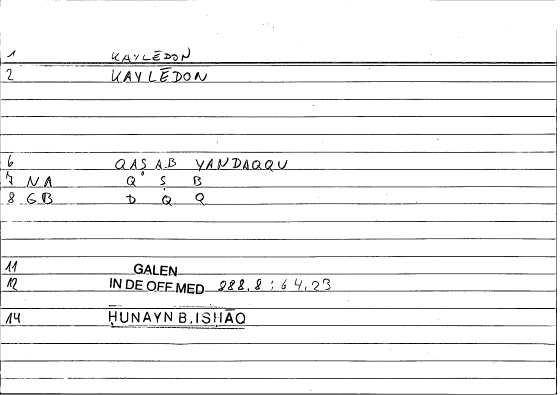 1 KAYLĒDON
2 KAYLĒDON
6 QAṢAB YANDAQQU
7 NA Q Ṣ B
8 GB D Q Q
11 GALEN
12 IN DE OFF MED 888.8 : 64,23
14 HUNAYN B.ISHĀQ